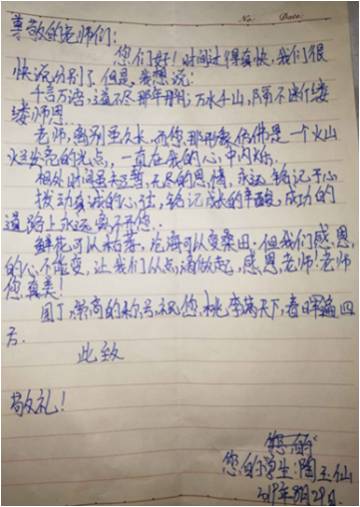 No.      Date:
尊敬的老师们:
您们好!时间过得真快,我们很
快就分别了,但是,我想说:
千言万语,道不尽那年那月;万水千山,隔不断缕
缕师恩.
老师,离别虽久长,而您那形象仿佛是一个火
一直在我的心中闪烁.
相处时间虽短暂,无尽的恩情,永远铭记于心
拨动真诚的心弦,铭记成长的辛酸,成功的
道路上永远离不开您.
鲜花可以枯萎,沧海可以变桑田,但我们感恩
的心不能变,让我们从点滴做起,感恩老师!老师
您真美!
园丁,崇高的称号,祝您,桃李满天下,春晖遍四
方.
此致
敬礼!
您的学生:陶玉仙